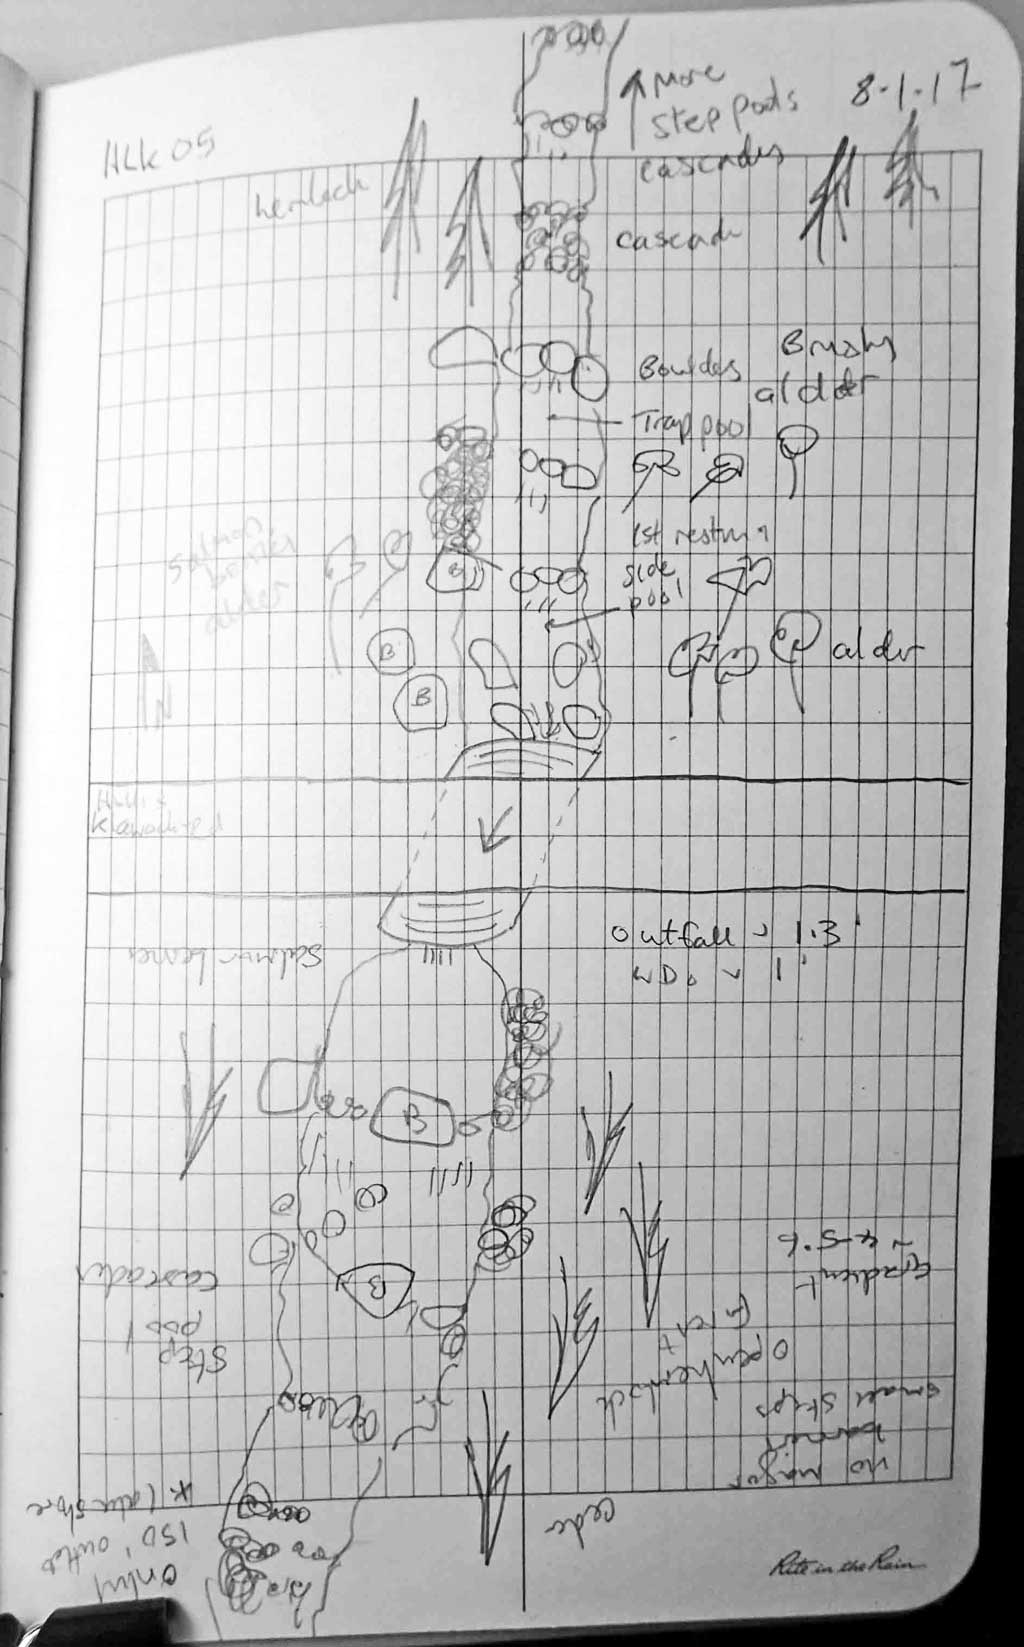 ↑ More
step pools
cascades
8-1-17
HLK 05
hemlock
cascade
Boulders
Brushy
alder
Trap pool
Salmon
berries
alder
1st resting
side
pool
B
B
B
alder
N
outfall ~ 1.3'
WD. ~ 1'
Salmon berries
B
B
gradient
~ 4-5.6
Cascades
step
pool
open hemlock
forest
no major
barrier
small steps
cedar
only
150' outlet
* lakeshore
Rite in the Rain